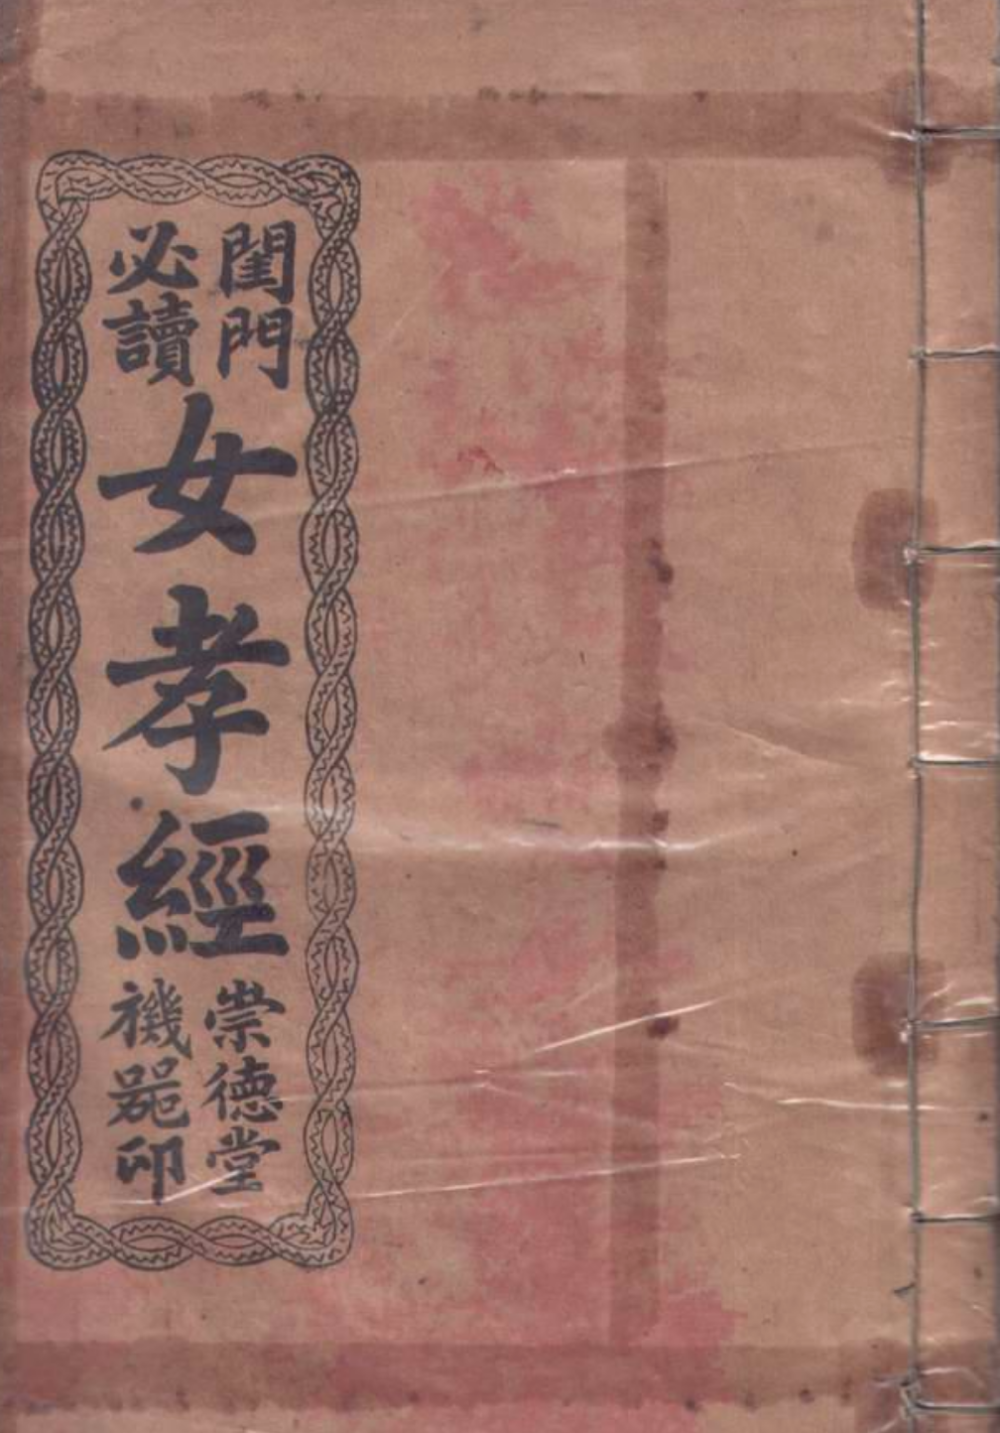 閨門
必讀
女孝經
崇德堂
機器印